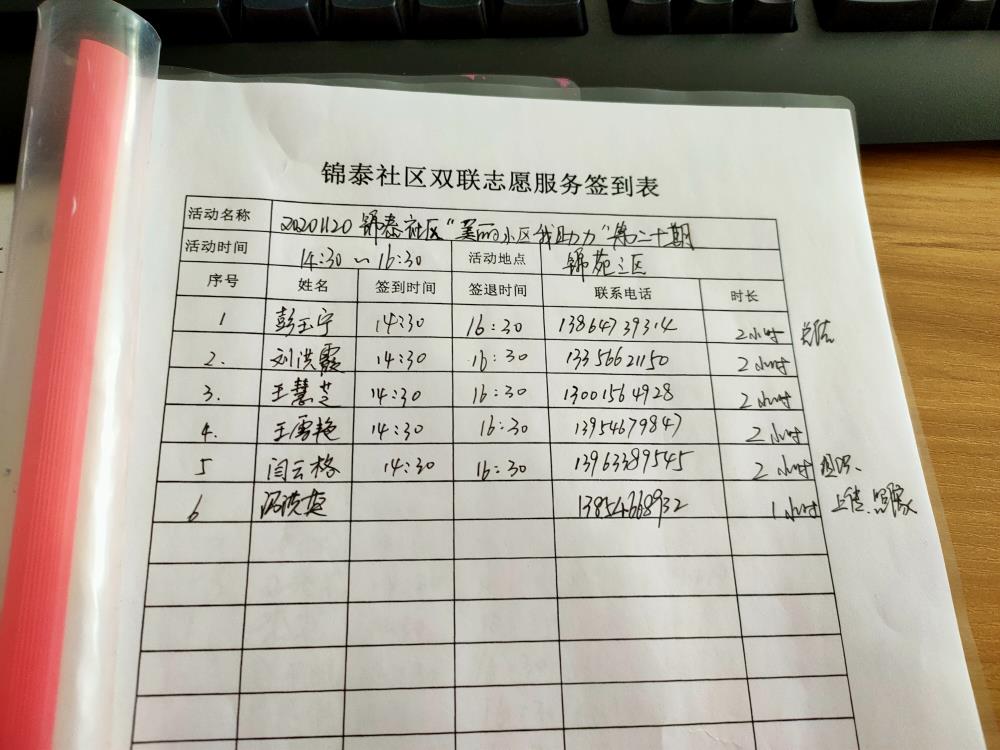 锦泰社区双联志愿服务签到表
活动名称 20201120 锦泰社区“美丽小区我助力”第二十期
活动时间 14:30~16:30 活动地点 锦苑三区
序号 姓名 签到时间 签退时间 联系电话 时长
1 彭玉宁 14:30 16:30 13864739314 2小时 总结
2. 刘洪霞 14:30 16:30 13356621150 2小时
3. 王慧芝 14:30 16:30 13001564928 2小时
4. 王雪艳 14:30 16:30 13954679847 2小时
5 闫云格 14:30 16:30 13963389545 2小时 组织、
6 冯洪 13854668932 1小时 上传、照